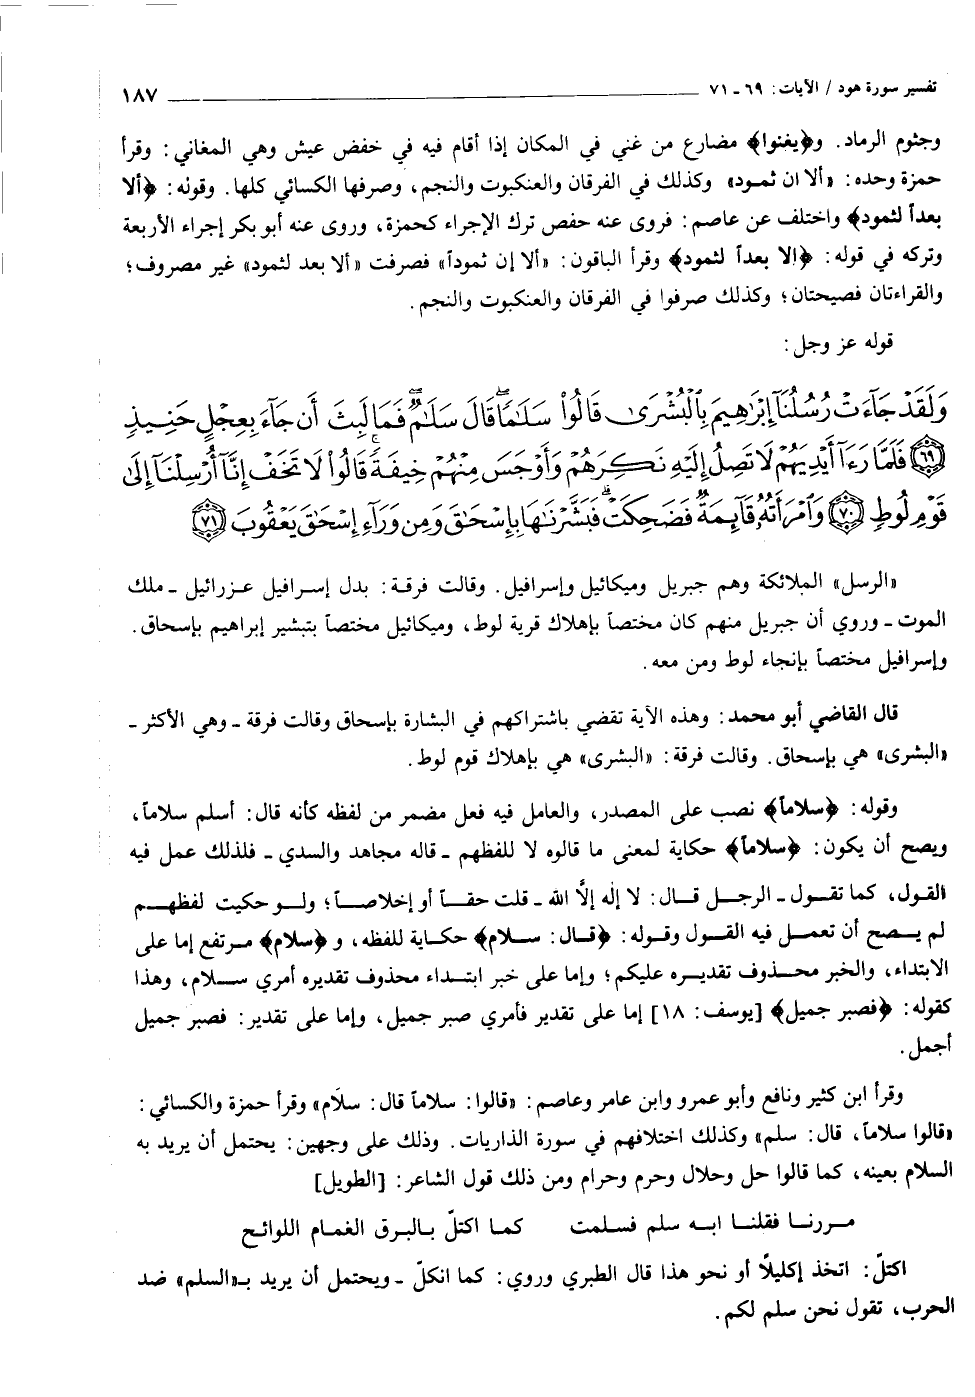 تفسير سورة هود / الآيات: ٦٩ ـ ٧١ ١٨٧
وجثوم الرماد. و﴿يغنوا﴾ مضارع من غني في المكان إذا أقام فيه في خفض عيش وهي المغاني: وقرأ
حمزة وحده: «ألا ان ثمود» وكذلك في الفرقان والعنكبوت والنجم، وصرفها الكسائي كلها. وقوله: ﴿ألا
بعداً لثمود﴾ واختلف عن عاصم: فروى عنه حفص ترك الإجراء كحمزة، وروى عنه أبو بكر إجراء الأربعة
وتركه في قوله: ﴿إلا بعداً لثمود﴾ وقرأ الباقون: «ألا إن ثموداً» فصرفت «ألا بعد لثمود» غير مصروف؛
والقراءتان فصيحتان؛ وكذلك صرفوا في الفرقان والعنكبوت والنجم.
قوله عز وجل:
وَلَقَدْ جَآءَتْ رُسُلُنَآ إِبْرَٰهِيمَ بِٱلْبُشْرَىٰ قَالُوا۟ سَلَـٰمًا ۖ قَالَ سَلَـٰمٌ ۖ فَمَا لَبِثَ أَن جَآءَ بِعِجْلٍ حَنِيذٍ
﴿٦٩﴾ فَلَمَّا رَءَآ أَيْدِيَهُمْ لَا تَصِلُ إِلَيْهِ نَكِرَهُمْ وَأَوْجَسَ مِنْهُمْ خِيفَةً ۚ قَالُوا۟ لَا تَخَفْ إِنَّآ أُرْسِلْنَآ إِلَىٰ
قَوْمِ لُوطٍ ﴿٧٠﴾ وَٱمْرَأَتُهُۥ قَآئِمَةٌ فَضَحِكَتْ فَبَشَّرْنَـٰهَا بِإِسْحَـٰقَ وَمِن وَرَآءِ إِسْحَـٰقَ يَعْقُوبَ ﴿٧١﴾
«الرسل» الملائكة وهم جبريل وميكائيل وإسرافيل. وقالت فرقة: بدل إسرافيل عزرائيل ـ ملك
الموت ـ وروي أن جبريل منهم كان مختصاً بإهلاك قرية لوط، وميكائيل مختصاً بتبشير إبراهيم بإسحاق.
وإسرافيل مختصاً بإنجاء لوط ومن معه.
قال القاضي أبو محمد: وهذه الآية تقضي باشتراكهم في البشارة بإسحاق وقالت فرقة ـ وهي الأكثر ـ
«البشرى» هي بإسحاق. وقالت فرقة: «البشرى» هي بإهلاك قوم لوط.
وقوله: ﴿سلاماً﴾ نصب على المصدر، والعامل فيه فعل مضمر من لفظه كأنه قال: أسلم سلاماً،
ويصح أن يكون: ﴿سلاماً﴾ حكاية لمعنى ما قالوه لا للفظهم ـ قاله مجاهد والسدي ـ فلذلك عمل فيه
القول، كما تقول ـ الرجل قال: لا إله إلاَّ الله ـ قلت حقاً أو إخلاصاً؛ ولو حكيت لفظهم
لم يصح أن تعمل فيه القول وقوله: ﴿قال: سلام﴾ حكاية للفظه، و﴿سلام﴾ مرتفع إما على
الابتداء، والخبر محذوف تقديره عليكم؛ وإما على خبر ابتداء محذوف تقديره أمري سلام، وهذا
كقوله: ﴿فصبر جميل﴾ [يوسف: ١٨] إما على تقدير فأمري صبر جميل، وإما على تقدير: فصبر جميل
أجمل.
وقرأ ابن كثير ونافع وأبو عمرو وابن عامر وعاصم: «قالوا: سلاماً قال: سلام» وقرأ حمزة والكسائي:
«قالوا سلاماً، قال: سلم» وكذلك اختلافهم في سورة الذاريات. وذلك على وجهين: يحتمل أن يريد به
السلام بعينه، كما قالوا حل وحلال وحرم وحرام ومن ذلك قول الشاعر: [الطويل]
مررنا فقلنا ابه سلم فسلمت كما اكتلّ بالبرق الغمام اللوائح
اكتلّ: اتخذ إكليلاً أو نحو هذا قال الطبري وروي: كما انكلّ ـ ويحتمل أن يريد بـ«السلم» ضد
الحرب، تقول نحن سلم لكم.